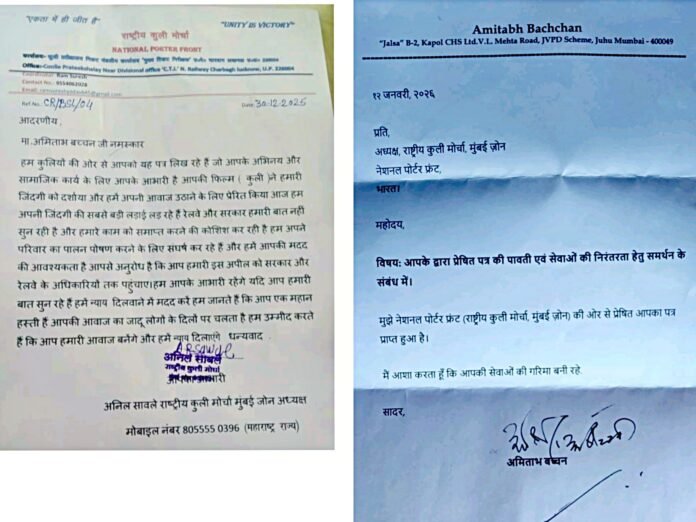 "एकता में ही जीत है"
"UNITY IS VICTORY"
राष्ट्रीय कुली मोर्चा
NATIONAL PORTER FRONT
Contact No.- 9554062928
Ref.No. CR/BSL/04
Date 30-12-2025
आदरणीय ,
मा.अमिताभ बच्चन जी नमस्कार
हम कुलियों की ओर से आपको यह पत्र लिख रहे हैं जो आपके अभिनय और
सामाजिक कार्य के लिए आपके आभारी है आपकी फिल्म ( कुली )ने हमारी
जिंदगी को दर्शाया और हमें अपनी आवाज उठाने के लिए प्रेरित किया आज हम
अपनी जिंदगी की सबसे बड़ी लड़ाई लड़ रहे हैं रेलवे और सरकार हमारी बात नहीं
सुन रही है और हमारे काम को समाप्त करने की कोशिश कर रही है हम अपने
परिवार का पालन पोषण करने के लिए संघर्ष कर रहे हैं और हमें आपकी मदद
की आवश्यकता है आपसे अनुरोध है कि आप हमारी इस अपील को सरकार और
रेलवे के अधिकारियों तक पहुंचाए।हम आपके आभारी रहेंगे यदि आप हमारी
बात सुन रहे हैं हमें न्याय दिलवाने मे मदद करें हम जानते हैं कि आप एक महान
हस्ती हैं आपकी आवाज का जादू लोगो के दिलों पर चलता है हम उम्मीद करते
हैं कि आप हमारी आवाज बनेंगे और हमें न्याय दिलाएंगे धन्यवाद .
अनिल सावले
राष्ट्रीय कुली मोर्चा
आपका आभारी
अनिल सावले राष्ट्रीय कुली मोर्चा मुंबई जोन अध्यक्ष
मोबाइल नंबर 805555 0396 (महाराष्ट्र राज्य)
Amitabh Bachchan
"Jalsa" B-2, Kapol CHS Ltd.V.L. Mehta Road, JVPD Scheme, Juhu Mumbai - 400049
१२ जनवरी, २०२६
प्रति,
अध्यक्ष, राष्ट्रीय कुली मोर्चा, मुंबई ज़ोन
नेशनल पोर्टर फ्रंट,
भारत।
महोदय,
विषय: आपके द्वारा प्रेषित पत्र की पावती एवं सेवाओं की निरंतरता हेतु समर्थन के
संबंध में।
मुझे नेशनल पोर्टर फ्रंट (राष्ट्रीय कुली मोर्चा, मुंबई ज़ोन) की ओर से प्रेषित आपका पत्र
प्राप्त हुआ है।
मैं आशा करता हूँ कि आपकी सेवाओं की गरिमा बनी रहे.
सादर,
अमिताभ बच्चन